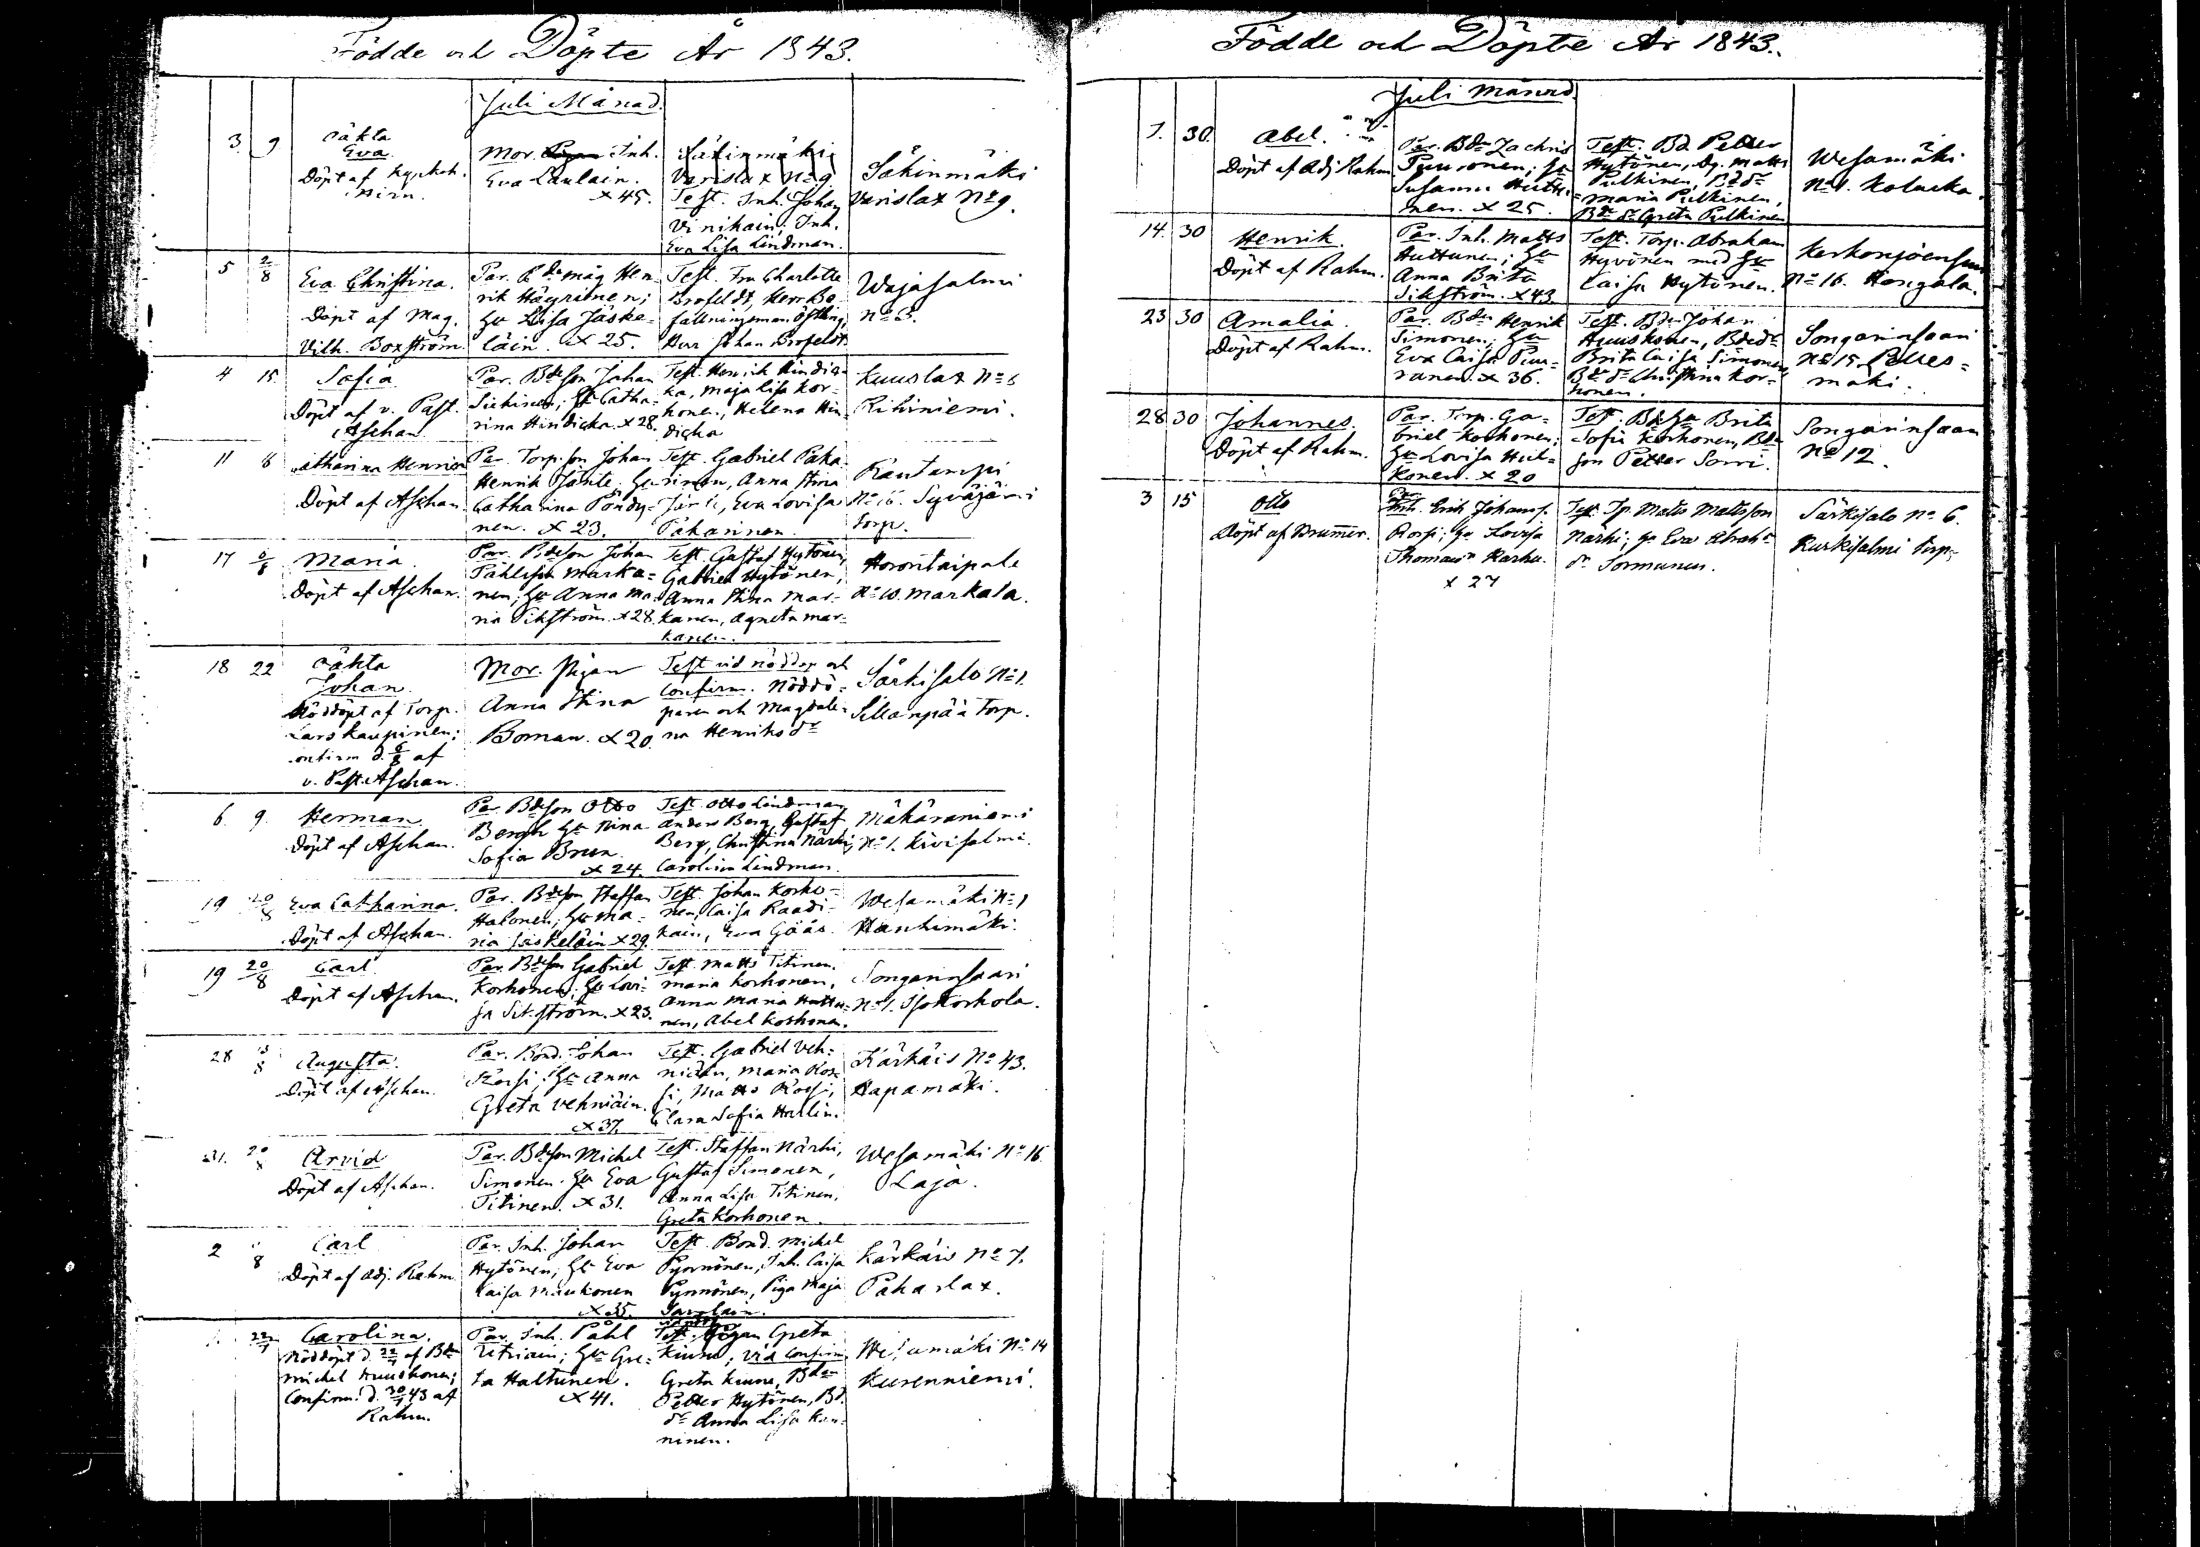 Födde och Döpte År 1843.
Juli Månad.
3 9
oäkta
Eva
Döpt af
Mor. Inh.
Eva Laulain.
x 45.
Säkinmäki
Varislax No 9
Test. Inh. Johan
Vinikain, Inh.
Eva Lisa Lindman.
Säkinmäki
Varislax No 9.
5 2/8
Eva Christina.
Döpt af Mag.
Vilh. Boxström.
Par. Bde måg Hen-
rik Häyrinen;
Hu Lisa Jäske-
läin. x 25.
Test. Fru Charlotte
Brofeldt, Herr Be-
fallningsman Östling,
Herr Johan Brofeldt
Wajasalmi
No 3.
4 15
Sofia
Döpt af v. Past.
Aschan
Par. Bdeson Johan
Siekinen; Hu Catha-
rina Hindicka. x 28.
Test. Henrik Hindic-
ka, Maja Lisa Kor-
honen, Helena Hin-
dicka
Kuuslax No 6
Rihiniemi.
11 8
Catharina Henrica
Döpt af Aschan.
Par. Torp. son Johan
Henrik Jänte; Hu
Catharina Pöndy-
nen. x 23.
Test. Gabriel Paka-
rinen, Anna Stina
Jänte, Eva Lovisa
Pakarinen.
Rautampi
No 16. Syväjärvi
Torp.
17 6/8
Maria.
Döpt af Aschan.
Par. Bdeson Johan
Påhlsson Marka-
nen; Hu Anna Ma-
ria Sikström. x 28.
Test. Gustaf Hytönen,
Gabriel Hytönen,
Anna Stina Mar-
kanen, Agneta Mar-
kanen.
Horontaipale
No 10. Markala.
18 22
oäkta
Johan.
Nöddöpt af Torp.
Lars Kaupinen;
confirm d. 6/8 af
v. Past. Aschan.
Mor. Pigan
Anna Stina
Boman. x 20.
Test. vid nöddop och
confirm. Nöddö-
paren och Magdale-
na Henriksdr
Särkisalo No 1.
Sillanpää Torp.
6. 9.
Herman
Döpt af Aschan.
Par. Bdeson Otto
Bergh Hu Stina
Sofia Brun
x 24.
Test. Otto Lindman,
Anders Berg, Gustaf
Berg, Christina Närhi,
Carolina Lindman.
Mäkäraniemi
No 1. Kivisalmi.
19 20/8
Eva Catharina.
Döpt af Aschan.
Par. Bdeson Staffan
Halonen; Hu Ma-
ria Jäskeläin x 29.
Test. Johan Korho-
nen, Caisa Raadi-
kain, Eva Göös.
Wesamäki No 1
Hankimäki.
19 20/8
Carl
Döpt af Aschan.
Par. Bdeson Gabriel
Korhonen; Hu Lovi-
sa Sikström. x 23.
Test. Matts Titinen.
Maria Korhonen,
Anna Maria Huttu-
nen, Abel Korhonen.
Songarinsaari
No 1. Isokorhola.
28
Augusta.
Döpt af Aschan.
Par. Bond. Johan
Rossi; Hu Anna
Greta Vehniäin.
x 37.
Test. Gabriel Veh-
niäin, Maria Ros-
si, Matts Rossi,
Clara Sofia Harlin.
Kärkäis No 43.
Hapamäki.
31. 20/8
Arvid
Döpt af Aschan.
Par. Bdeson Michel
Simonen. Hu Eva
Titinen. x 31.
Test. Staffan Närhi,
Gustaf Simonen,
Anna Lisa Titinen,
Greta Korhonen.
Wesamäki No 16.
Laja.
2
Carl
Döpt af Adj. Rahm
Par. Inh. Johan
Hytönen; Hu Eva
Caisa Maukonen
x 35.
Test. Bond. Michel
Pynnönen, Inh. Caisa
Pynnönen, Piga Maja
Savolain.
Kärkäis No 7.
Paharlax.
22/7
Carolina.
Nöddöpt d. 22/7 af Bdn
Michel Huuskonen;
Confirm. d. 30/7 43 af
Rahm.
Par. Inh. Påhl
Utriain; Hu Gre-
ta Haltunen.
x 41.
Test. Pigan Greta
Kinnu; vid Confirm.
Greta Kinnu, Bden
Petter Hytönen, Bd.
dr Anna Lisa Kon-
ninen.
Wesamäki No 14
Kusenniemi.
Födde och Döpte År 1843.
Juli Månad.
7. 30.
Abel.
Döpt af Adj Rahm
Par. Bdn Zachris
Puuronen; Hu
Susanna Huttu-
nen. x 25.
Test. Bd. Petter
Hytönen, Dg. Matts
Pulkinen, Bd dr
Maria Pulkinen,
Bde dr Greta Pulkinen
Wesamäki
No 1. Kolucka.
14. 30
Henrik.
Döpt af Rahm.
Par. Inh. Matts
Huttunen; Hu
Anna Brita
Sikström. x 43
Test. Torp. Abraham
Hyvönen med Hu
Caisa Hytönen.
Kerkonjoensuu
No 16. Hongola.
23 30
Amalia.
Döpt af Rahm.
Par. Bdn Henrik
Simonen; Hu
Eva Caisa Puu-
ronen. x 36.
Test. Bdn Johan
Huuskonen, Bdedr
Brita Caisa Simonen,
Bde dr Christina Kor-
honen.
Songarinsaari
No 15. Petres-
mäki.
28 30
Johannes.
Döpt af Rahm.
Par. Torp. Ga-
briel Korhonen;
Hu Lovisa Hut-
konen. x 20
Test. Bde Hu Brita
Sofia Korhonen, Bde
son Petter Sorri.
Songarinsaari
No 12.
3 15
Otto
Döpt af Brummer.
Par. Erik Johanss.
Rossi; Hu Lovisa
Thomasdr Karhu.
x 27
Test. Tp. Matts Mattsson
Närhi; Hu Eva Abrah:
dr Tormunen.
Särkisalo No 6.
Kurkisalmi Torp.